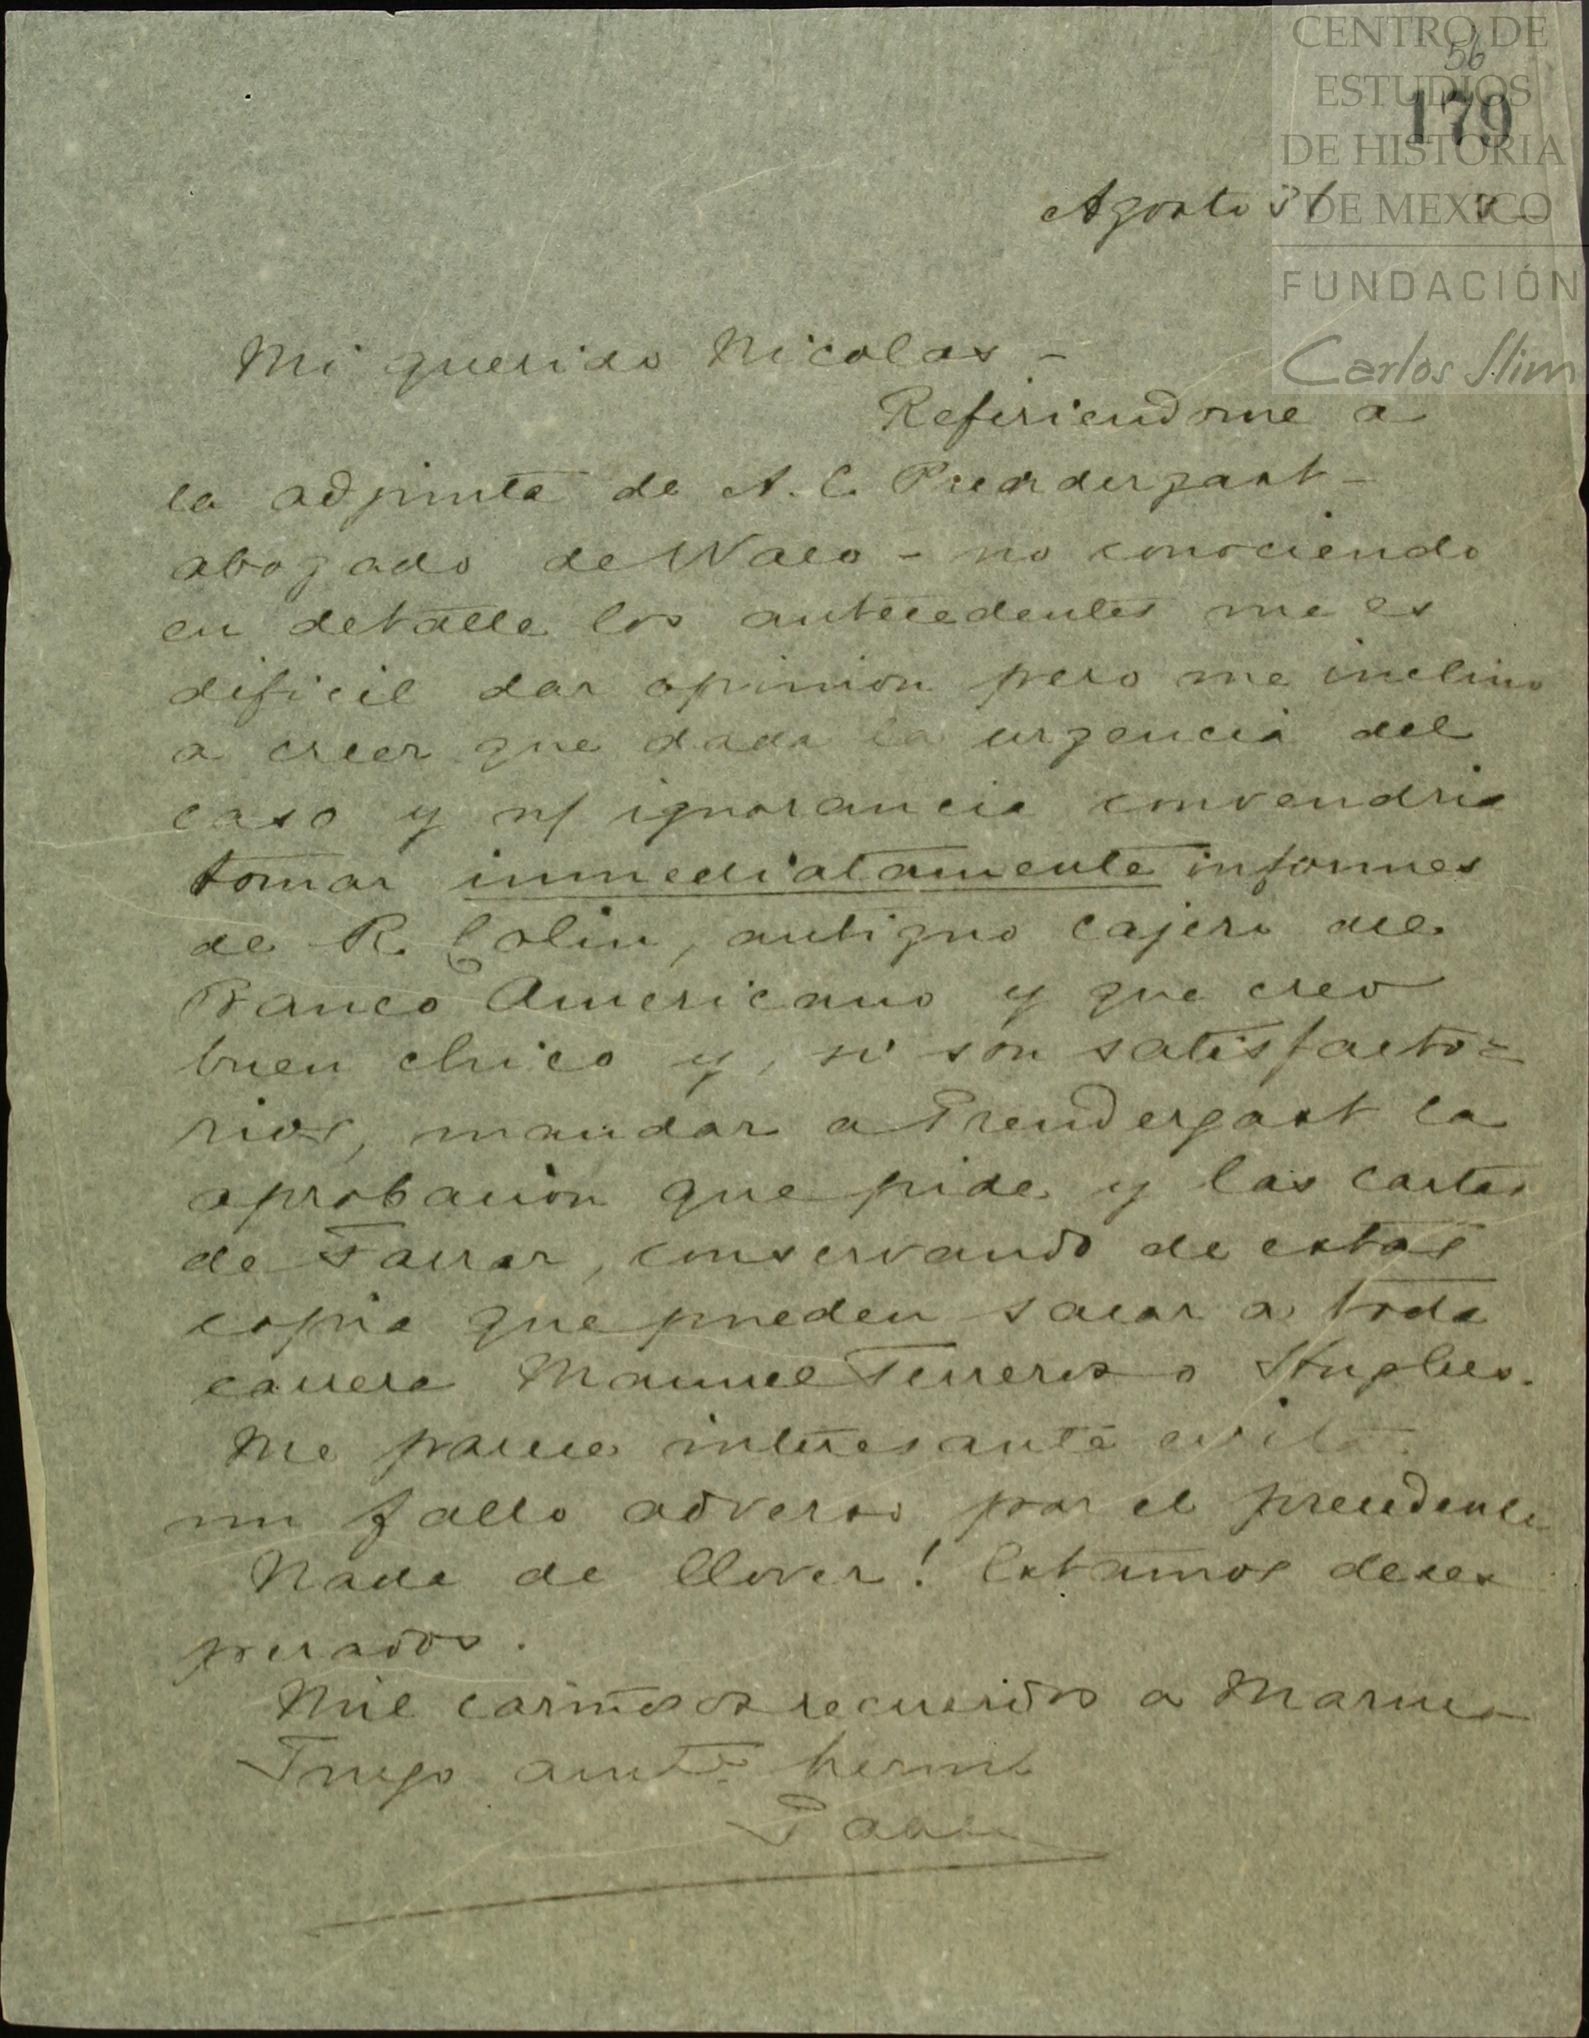 CENTRO DE
ESTUDIOS
DE HISTORIA
DE MEXICO
FUNDACIÓN
Carlos Slim
56
179
Agosto 31
Mi querido Nicolas -
Refiriendome a
la adjunta de A. C. Prendergast -
abogado de Waco - no conociendo
en detalle los antecedentes me es
dificil dar opinion pero me inclino
a creer que dada la urgencia del
caso y n/ ignorancia convendria
tomar inmediatamente informes
de R. Colin, antiguo cajero del
Banco Americano y que creo
buen chico y, si son satisfacto=
rios, mandar a Prendergast la
aprobacion que pide y las cartas
de Farrar, conservando de estas
copia que pueden sacar a toda
carrera Manuel Terreros o Hughes.
Me parece interesante evitar
un fallo adverso por el precedente
Nada de llover! Estamos deses
perados.
Mil cariñosos recuerdos a
Tuyo hermo